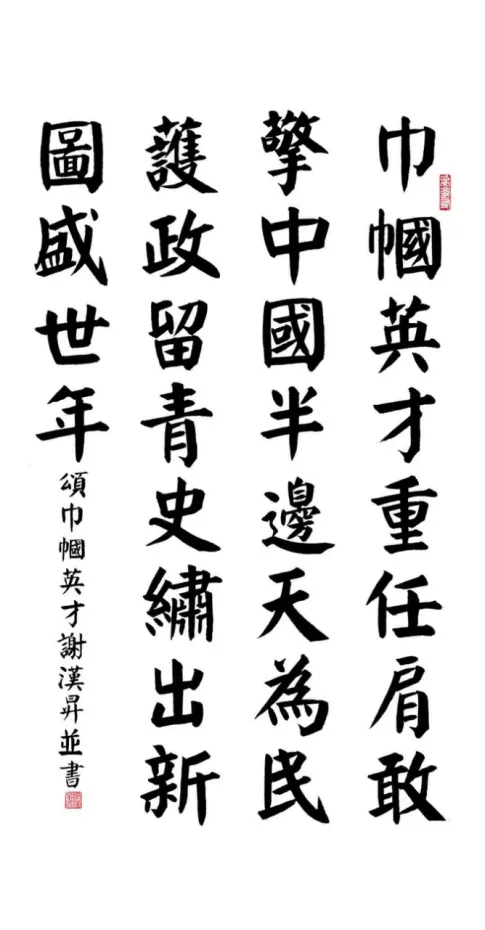 巾幗英才重任肩敢
擎中國半邊天為民
護政留青史繡出新
圖盛世年
頌巾幗英才謝漢昇並書